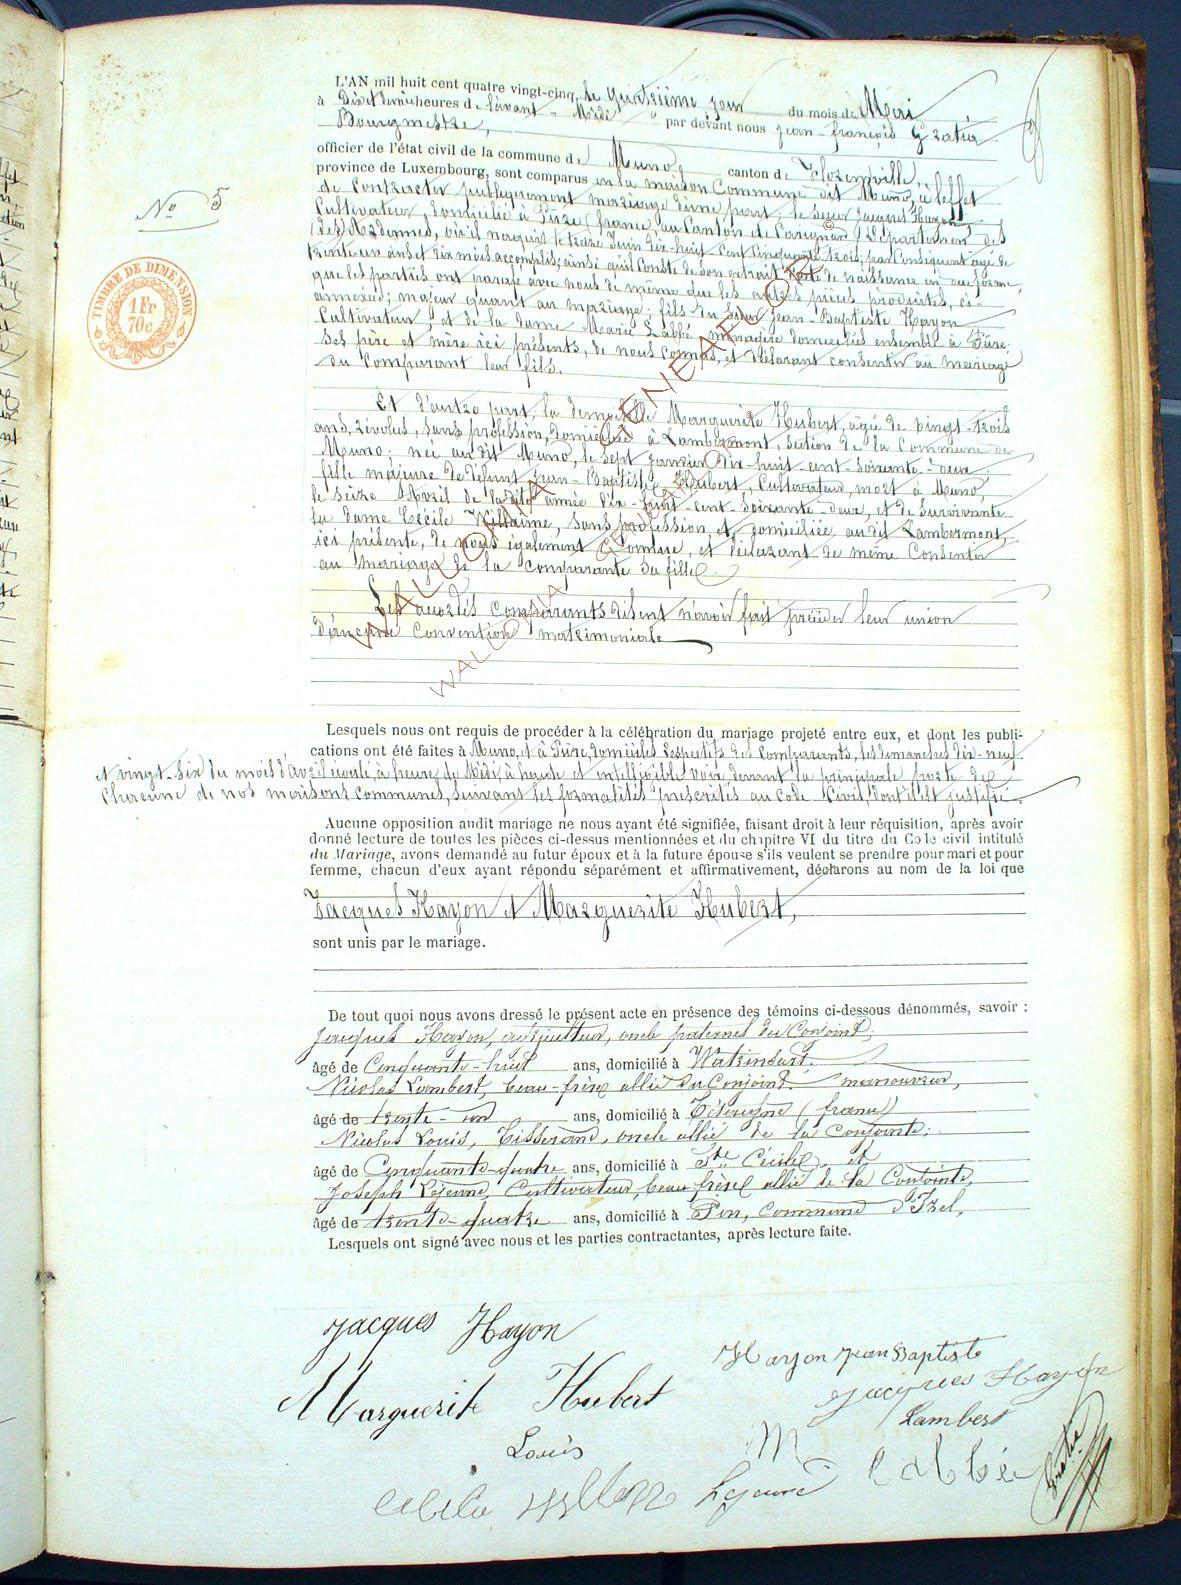 L'AN mil huit cent quatre vingt-cinq, le quatorzième jour du mois de Mai
à Dix et demie heures de levant - Midi, par devant nous Jean-françois Gratia
Bourgmestre,
officier de l'état civil de la commune de Muno, canton de Florenville,
province de Luxembourg, sont comparus en la maison Commune dit Muno, à l'effet
de Contracter publiquement mariage d'une part, le Sieur Jacques Hayon
Cultivateur, domicilié à Pure (france) au Canton de Carignan, (département des
(des) Ardennes, où il naquit le treize Juin dix-huit-Cent Cinquante-trois; par Conséquent agé de
trente-un ans et dix mois accomplis; ainsi qu'il Conste de son extrait d'acte de naissance en due forme,
que les parties ont parafé avec nous de même que les autres pièces produites, ci-
annexées; majeur quant au mariage; fils du Sieur Jean-Baptiste Hayon
Cultivateur, et de la dame Marie Labbé, ménagère domiciliés ensemble à Pure;
Ses père et mère ici présents, de nous Connus, et déclarant consentir au mariage
du Comparant leur fils.
Et d'autre part, la demoiselle Marguerite Hubert, agée de vingt-trois
ans, révolus, sans profession, domiciliée à Lambermont, section de la Commune de
Muno; née audit Muno, le sept Janvier dix-huit-cent-soixante-deux,
fille majeure de défunt Jean-Baptiste Hubert, Cultivateur, mort à Muno,
le seize Avril de ladite année dix-huit-cent-soixante-deux, et de survivante
la dame Cécile Willaime, sans profession, et domiciliée audit Lambermont,
ici présente, de nous également Connue, et déclarant de même Consentir
au mariage de la comparante sa fille.
Les accordés comparants disent n'avoir fait précéder leur union
d'aucune Convention matrimoniale
No 5
TIMBRE DE DIMENSION
1 Fr
70c
© WALLONIA GENEAFLOR
WALLONIA GENEAFLOR
Lesquels nous ont requis de procéder à la célébration du mariage projeté entre eux, et dont les publi-
cations ont été faites à Muno, et à Pure, domiciles respectifs des Comparants, les dimanches dix-neuf
et vingt-six du mois d'avril écoulé, à heure de Midi, à haute et intelligible voix, devant la principale porte de
Chacune de nos maisons communes, suivant les formalités prescrites au Code Civil, dont il est justifié.
Aucune opposition audit mariage ne nous ayant été signifiée, faisant droit à leur réquisition, après avoir
donné lecture de toutes les pièces ci-dessus mentionnées et du chapitre VI du titre du Code civil intitulé
du Mariage, avons demandé au futur époux et à la future épouse s'ils veulent se prendre pour mari et pour
femme, chacun d'eux ayant répondu séparément et affirmativement, déclarons au nom de la loi que
Jacques Hayon et Marguerite Hubert,
sont unis par le mariage.
De tout quoi nous avons dressé le présent acte en présence des témoins ci-dessous dénommés, savoir :
Jacques Hayon, oncle paternel du Conjoint,
âgé de Cinquante-huit ans, domicilié à Watrinsart.
Nicolas Lambert, beau-frère allié du Conjoint. manouvrier,
âgé de trente-un ans, domicilié à Tétaigne (france)
Nicolas Louis, Tisserand, oncle allié de la Conjointe,
âgé de Cinquante-quatre ans, domicilié à Ste Cécile, et
Joseph Lejeune, Cultivateur, beau frère allié de la Conjointe,
âgé de trente-quatre ans, domicilié à Pin, commune d'Izel.
Lesquels ont signé avec nous et les parties contractantes, après lecture faite.
Jacques Hayon
Hayon Jean Baptiste
Marguerite Hubert
Jacques Hayon
Lambert
Louis
M. Labbé
Lejeune
Gratia